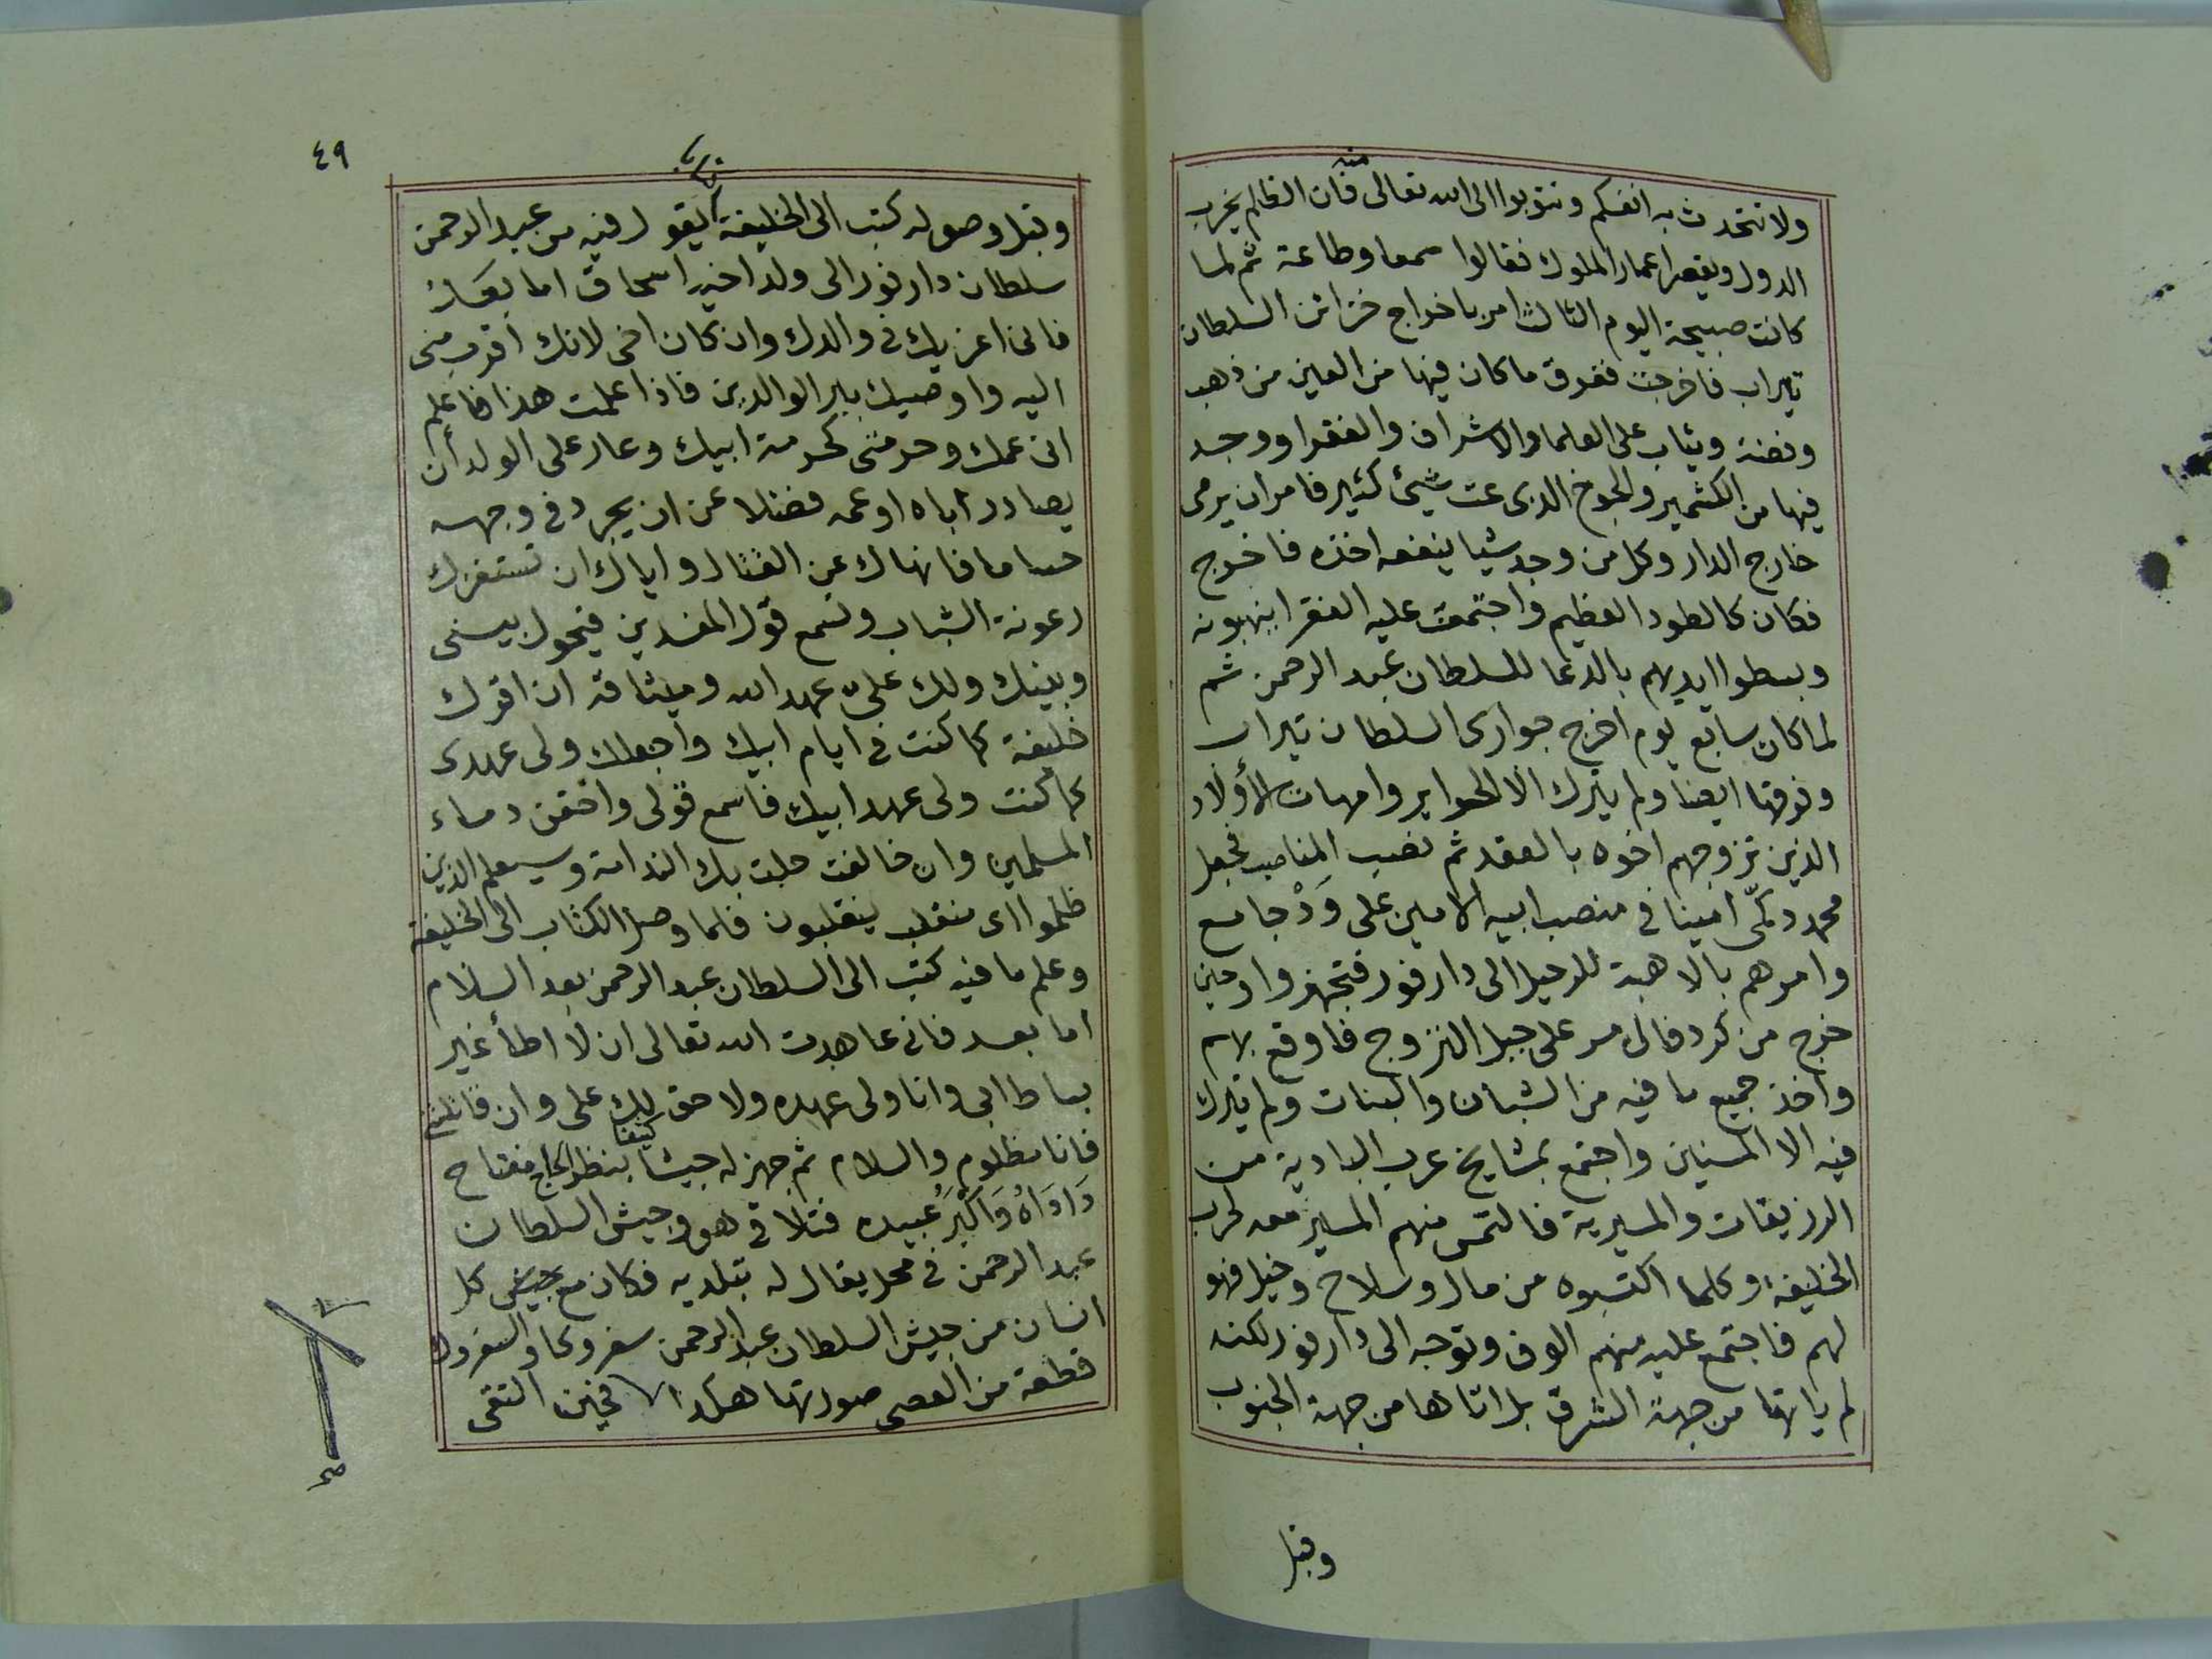 ولا تتحدث به انفسكم وتتوبوا الى الله تعالى منه فان الظلم يخرب
الدول ويقصر اعمار الملوك فقالوا سمعا وطاعة ثم لما
كانت صبيحة اليوم الثالث امر باخراج خزائن السلطان
تيراب فاخرجت ففرق ما كان فيها من العين من ذهب
وفضة وثياب على العلما والاشراف والفقرا ووجد
فيها من الكشمير والجوخ الذى عث شيئ كثير فامر ان يرمى
خارج الدار وكل من وجد شيا ينفعه اخذه فاخرج
فكان كالطود العظيم واجتمعت عليه الفقرا ينهبونه
وبسطوا ايديهم بالدعا للسلطان عبد الرحمن ثم
لما كان سابع يوم اخرج جوارى السلطان تيراب
وفرقها ايضا ولم يترك الا الحراير وامهات الأولاد
الذين تزوجهم اخوه بالعقد ثم نصب المناصب فجعل
محمد دكمّى امينا فى منصب ابيه الامين على وَدْ جامع
وامرهم بالاهبة للرحيل الى دارفور فتجهزوا وحين
خرج من كردفال مر على جبل التزوج فاوقع بهم
واخذ جميع ما فيه من الشبان والبنات ولم يترك
فيه الا المسنين واجتمع بمشايخ عرب البادية من
الرزيقات والمسيرية فالتمس منهم المسير معه لحرب
الخليفة وكلما اكتسبوه من مال وسلاح وخيل فهو
لهم فاجتمع عليه منهم الوف وتوجه الى دارفور لكنه
لم ياتها من جهة الشرق بل اتاها من جهة الجنوب
وقبل
٤٩
وقبل وصوله كتب الى الخليفة كتابا يقول فيه من عبد الرحمن
سلطان دارفور الى ولد اخيه اسحاق اما بعد
فانى اعزيك فى والدك وان كان اخى لانك اقرب منى
اليه واوصيك ببر الوالدين فاذا علمت هذا فاعلم
انى عمك وحرمتى كحرمة ابيك وعار على الولد أن
يصادر أباه او عمه فضلا عن ان يجرد فى وجهه
حساما فانهاك عن القتال واياك ان تستفزك
رعونة الشباب وتسمع قول المفسدين فيحول بينى
وبينك ولك علىّ عهد الله وميثاقه ان اقرك
خليفة كما كنت فى ايام ابيك واجعلك ولى عهدى
كما كنت ولى عهد ابيك فاسمع قولى واحقن دماء
المسلمين وان خالفت حلت بك الندامة وسيعلم الذين
ظلموا اى منقلب ينقلبون فلما وصل الكتاب الى الخليفة
وعلم ما فيه كتب الى السلطان عبد الرحمن بعد السلام
أما بعد فانى عاهدت الله تعالى ان لا اطأ غير
بساط ابى وانا ولى عهده ولا حق لك على وان قاتلتنى
فانا مظلوم والسلام ثم جهز له جيشا كثيفا بنظر الحاج مفتاح
دَادَاهُ وَاكْبَر عُبيده فتلاقى هو وجيش السلطان
عبد الرحمن فى محل يقال له تبلديه فكان مع جيش كل
انسان من جيش السلطان عبد الرحمن سفروكا والسفروك
قطعة من العصى صورتها هكذا فحين التقى